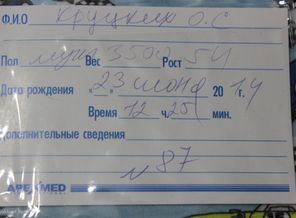 Ф.И.О Круцких О.С
Пол муж Вес 3500 Рост 54
Дата рождения «23» июня 2014 г.
Время 12 ч. 25 мин.
Дополнительные сведения
№87
APEXMED